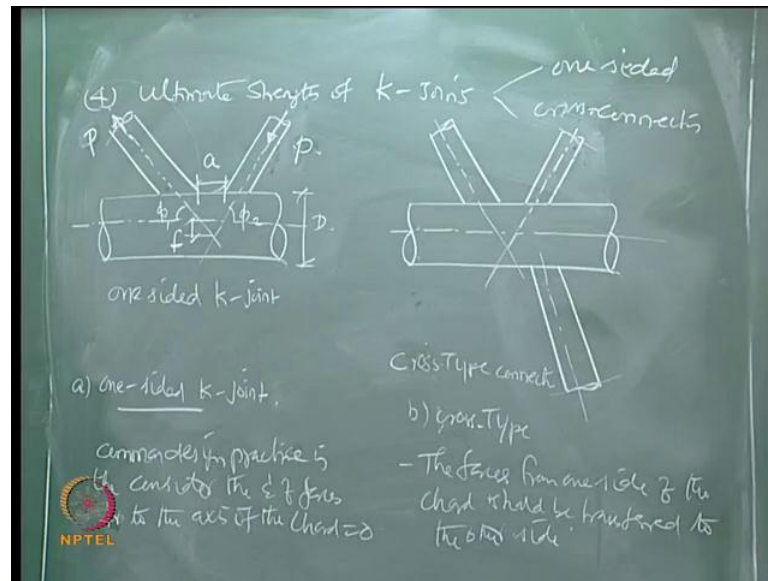 (4) Ultimate Strength of K-Joints
one sided
cross-connects
P
a
P.
ϕ
f
ϕ2
D.
one sided K-joint
Cross Type connect
a) one-sided K-joint.
b) cross-Type
common design practice is
the consider the Σ of forces
to the axis of the Chord = 0
- The forces from one side of the
chord should be transferred to
the other side.
NPTEL